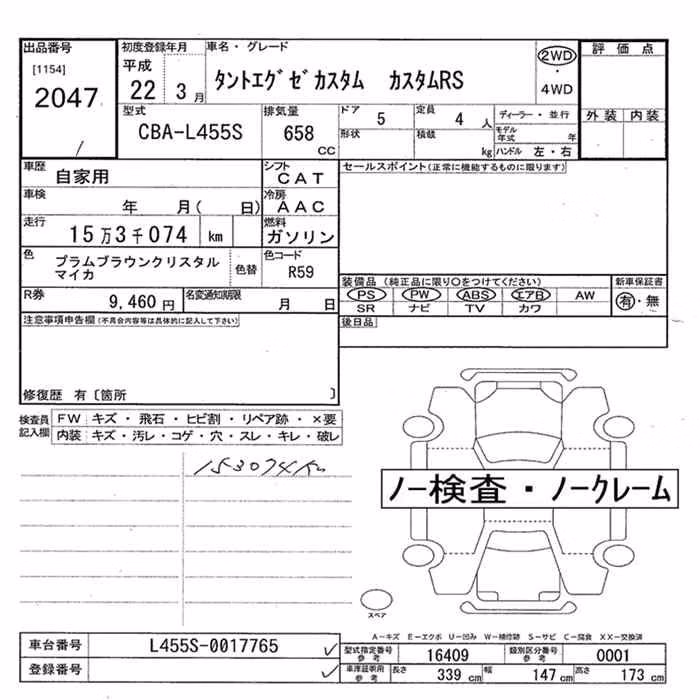 出品番号
[1154]
2047
初度登録年月
平成
22 3月
車名・グレード
タントエグゼカスタム カスタムRS
2WD
・
4WD
評価点
外装 内装
型式
CBA-L455S
排気量
658
cc
ドア 5
定員 4 人
形状
積載 kg
ディーラー・並行
モデル年式 年
ハンドル 左・右
車歴
自家用
シフト
CAT
車検
年 月( 日)
冷房
AAC
走行
15万3千074 km
燃料
ガソリン
色
プラムブラウンクリスタル
マイカ
色替
色コード
R59
R券
9,460 円
名変通知期限
月 日
セールスポイント(正常に機能するものに限ります)
装備品 (純正品に限り〇をつけてください)
新車保証書
PS PW ABS エアB AW
有・無
SR ナビ TV カワ
後日品
注意事項申告欄(不具合内容等は具体的に記入して下さい)
修復歴 有〔箇所 〕
検査員
記入欄
FW キズ・飛石・ヒビ割・リペア跡・×要
内装 キズ・汚レ・コゲ・穴・スレ・キレ・破レ
153074km
ノー検査・ノークレーム
スペア
A―キズ E―エクボ U―凹み W―補修跡 S―サビ C―腐食 XX―交換済
車台番号
L455S-0017765
登録番号
型式指定番号
参考
16409
類別区分番号
参考
0001
車庫証明用
参考
長さ 339 cm
幅 147 cm
高さ 173 cm